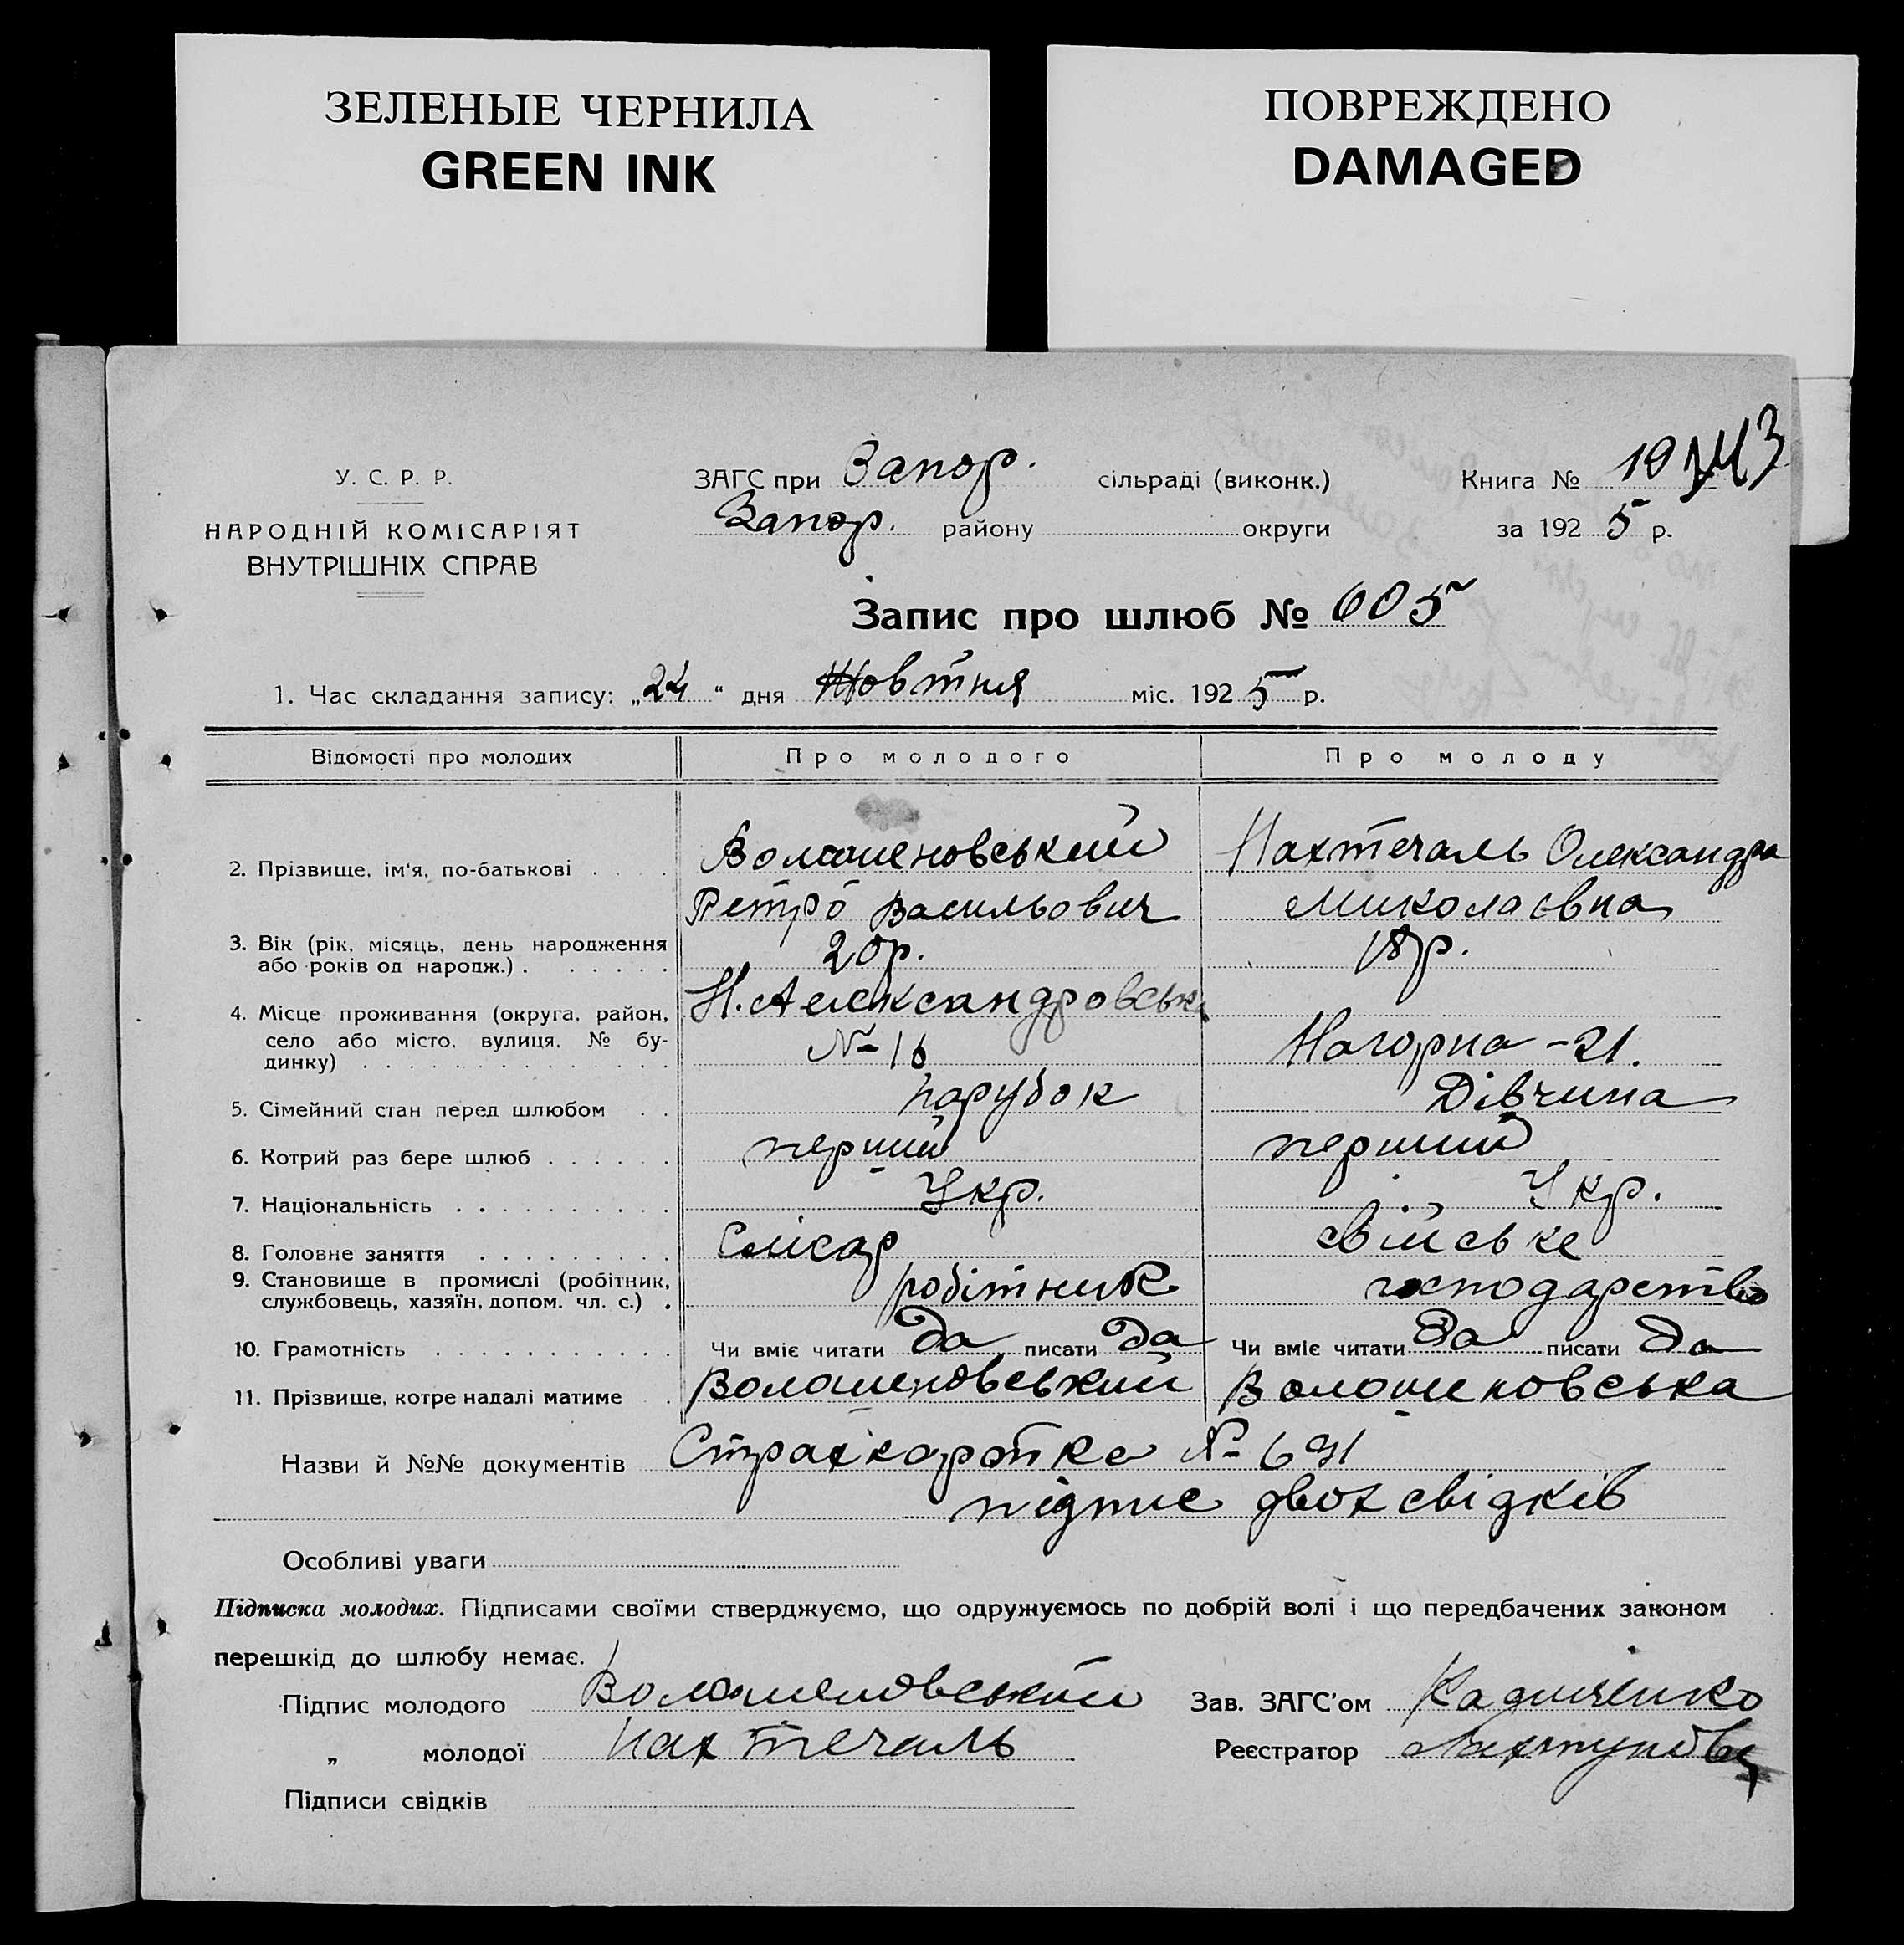 ЗЕЛЕНЫЕ ЧЕРНИЛА
GREEN INK
ПОВРЕЖДЕНО
DAMAGED
У. С. Р. Р.
НАРОДНІЙ КОМІСАРІЯТ
ВНУТРІШНІХ СПРАВ
ЗАГС при Запор. сільраді (виконк.)
Запор. району округи
Книга № 10
за 1925 р.
Запис про шлюб № 605
1. Час складання запису: „24“ дня Жовтня міс. 1925 р.
Відомості про молодих Про молодого Про молоду
2. Прізвище, ім'я, по-батькові Волошеновський Нахтегаль Олександра
Петро Васильович Миколаєвна
3. Вік (рік, місяць, день народження 20 р. 18 р.
або років од народж.)
4. Місце проживання (округа, район, Н. Александровськ
село або місто, вулиця, № бу- № 16 Нагорна - 21.
динку)
5. Сімейний стан перед шлюбом парубок Дівчина
6. Котрий раз бере шлюб перший перший
7. Національність Укр. Укр.
8. Головне заняття Слюсар
9. Становище в промислі (робітник, робітник господарство
службовець, хазяїн, допом. чл. с.)
10. Грамотність Чи вміє читати да писати да Чи вміє читати да писати да
11. Прізвище, котре надалі матиме Волошеновський Волошеновська
Назви й №№ документів Страхкартка №
підпис двох свідків
Особливі уваги
Підписка молодих. Підписами своїми стверджуємо, що одружуємось по добрій волі і що передбачених законом
перешкід до шлюбу немає.
Підпис молодого Волошеновський Зав. ЗАГС'ом
„ молодої Нахтегаль Реєстратор
Підписи свідків